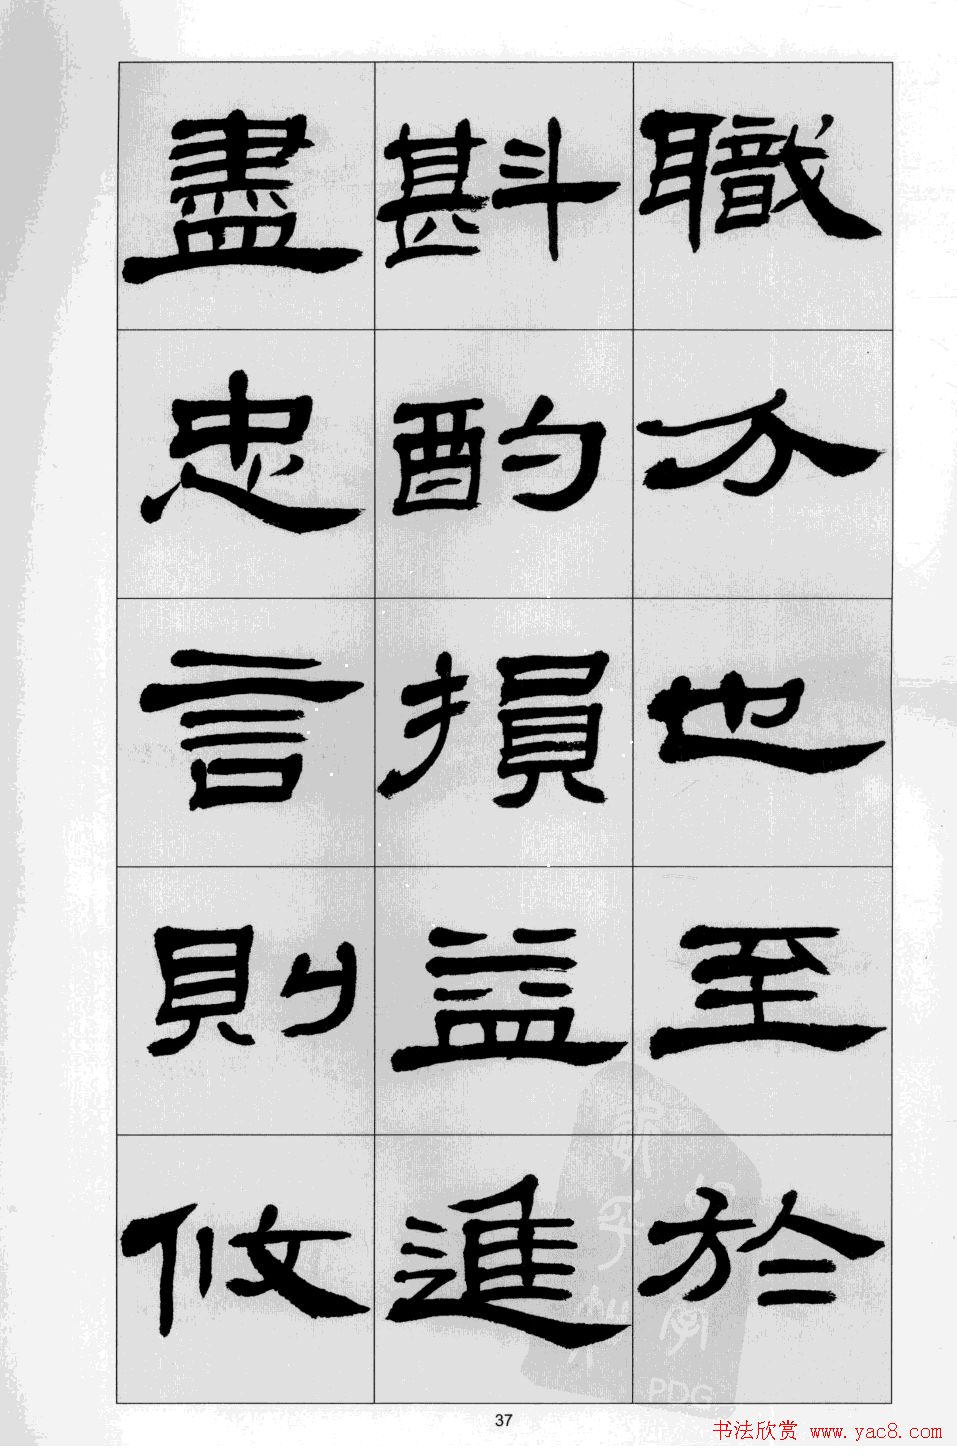 職分也至於
斟酌損益進
盡忠言則攸
PDG
37
书法欣赏 www.yac8.com